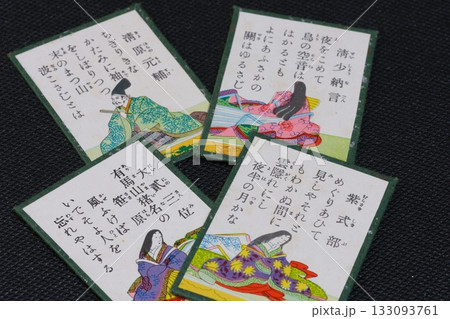 清原元輔
ちぎりきな
かたみに袖
をしぼりつつ
末のまつ山
波こさじとは
清少納言
夜をこめて
鳥の空音は
はかるとも
よにあふさかの
關はゆるさじ
大貳三位
有馬山猪名の
原
風ふけば
いでそよ人を
忘れやはする
紫式部
めぐりあひて
見しやそれと
もわかぬ間に
雲隠れにし
夜半の月かな
133093761